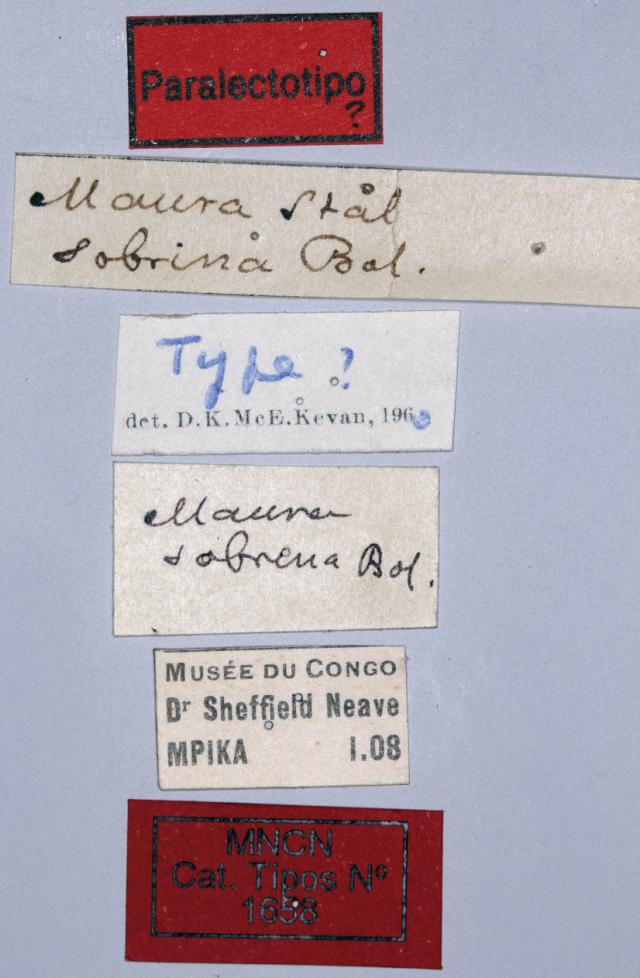 Paralectotipo
?
Maura Stål
sobrina Bol.
Type ?
det. D.K.McE.Kevan, 1960
Maura
sobrina Bol.
MUSÉE DU CONGO
Dr Sheffield Neave
MPIKA 1.08
MNCN
Cat. Tipos Nº
1658